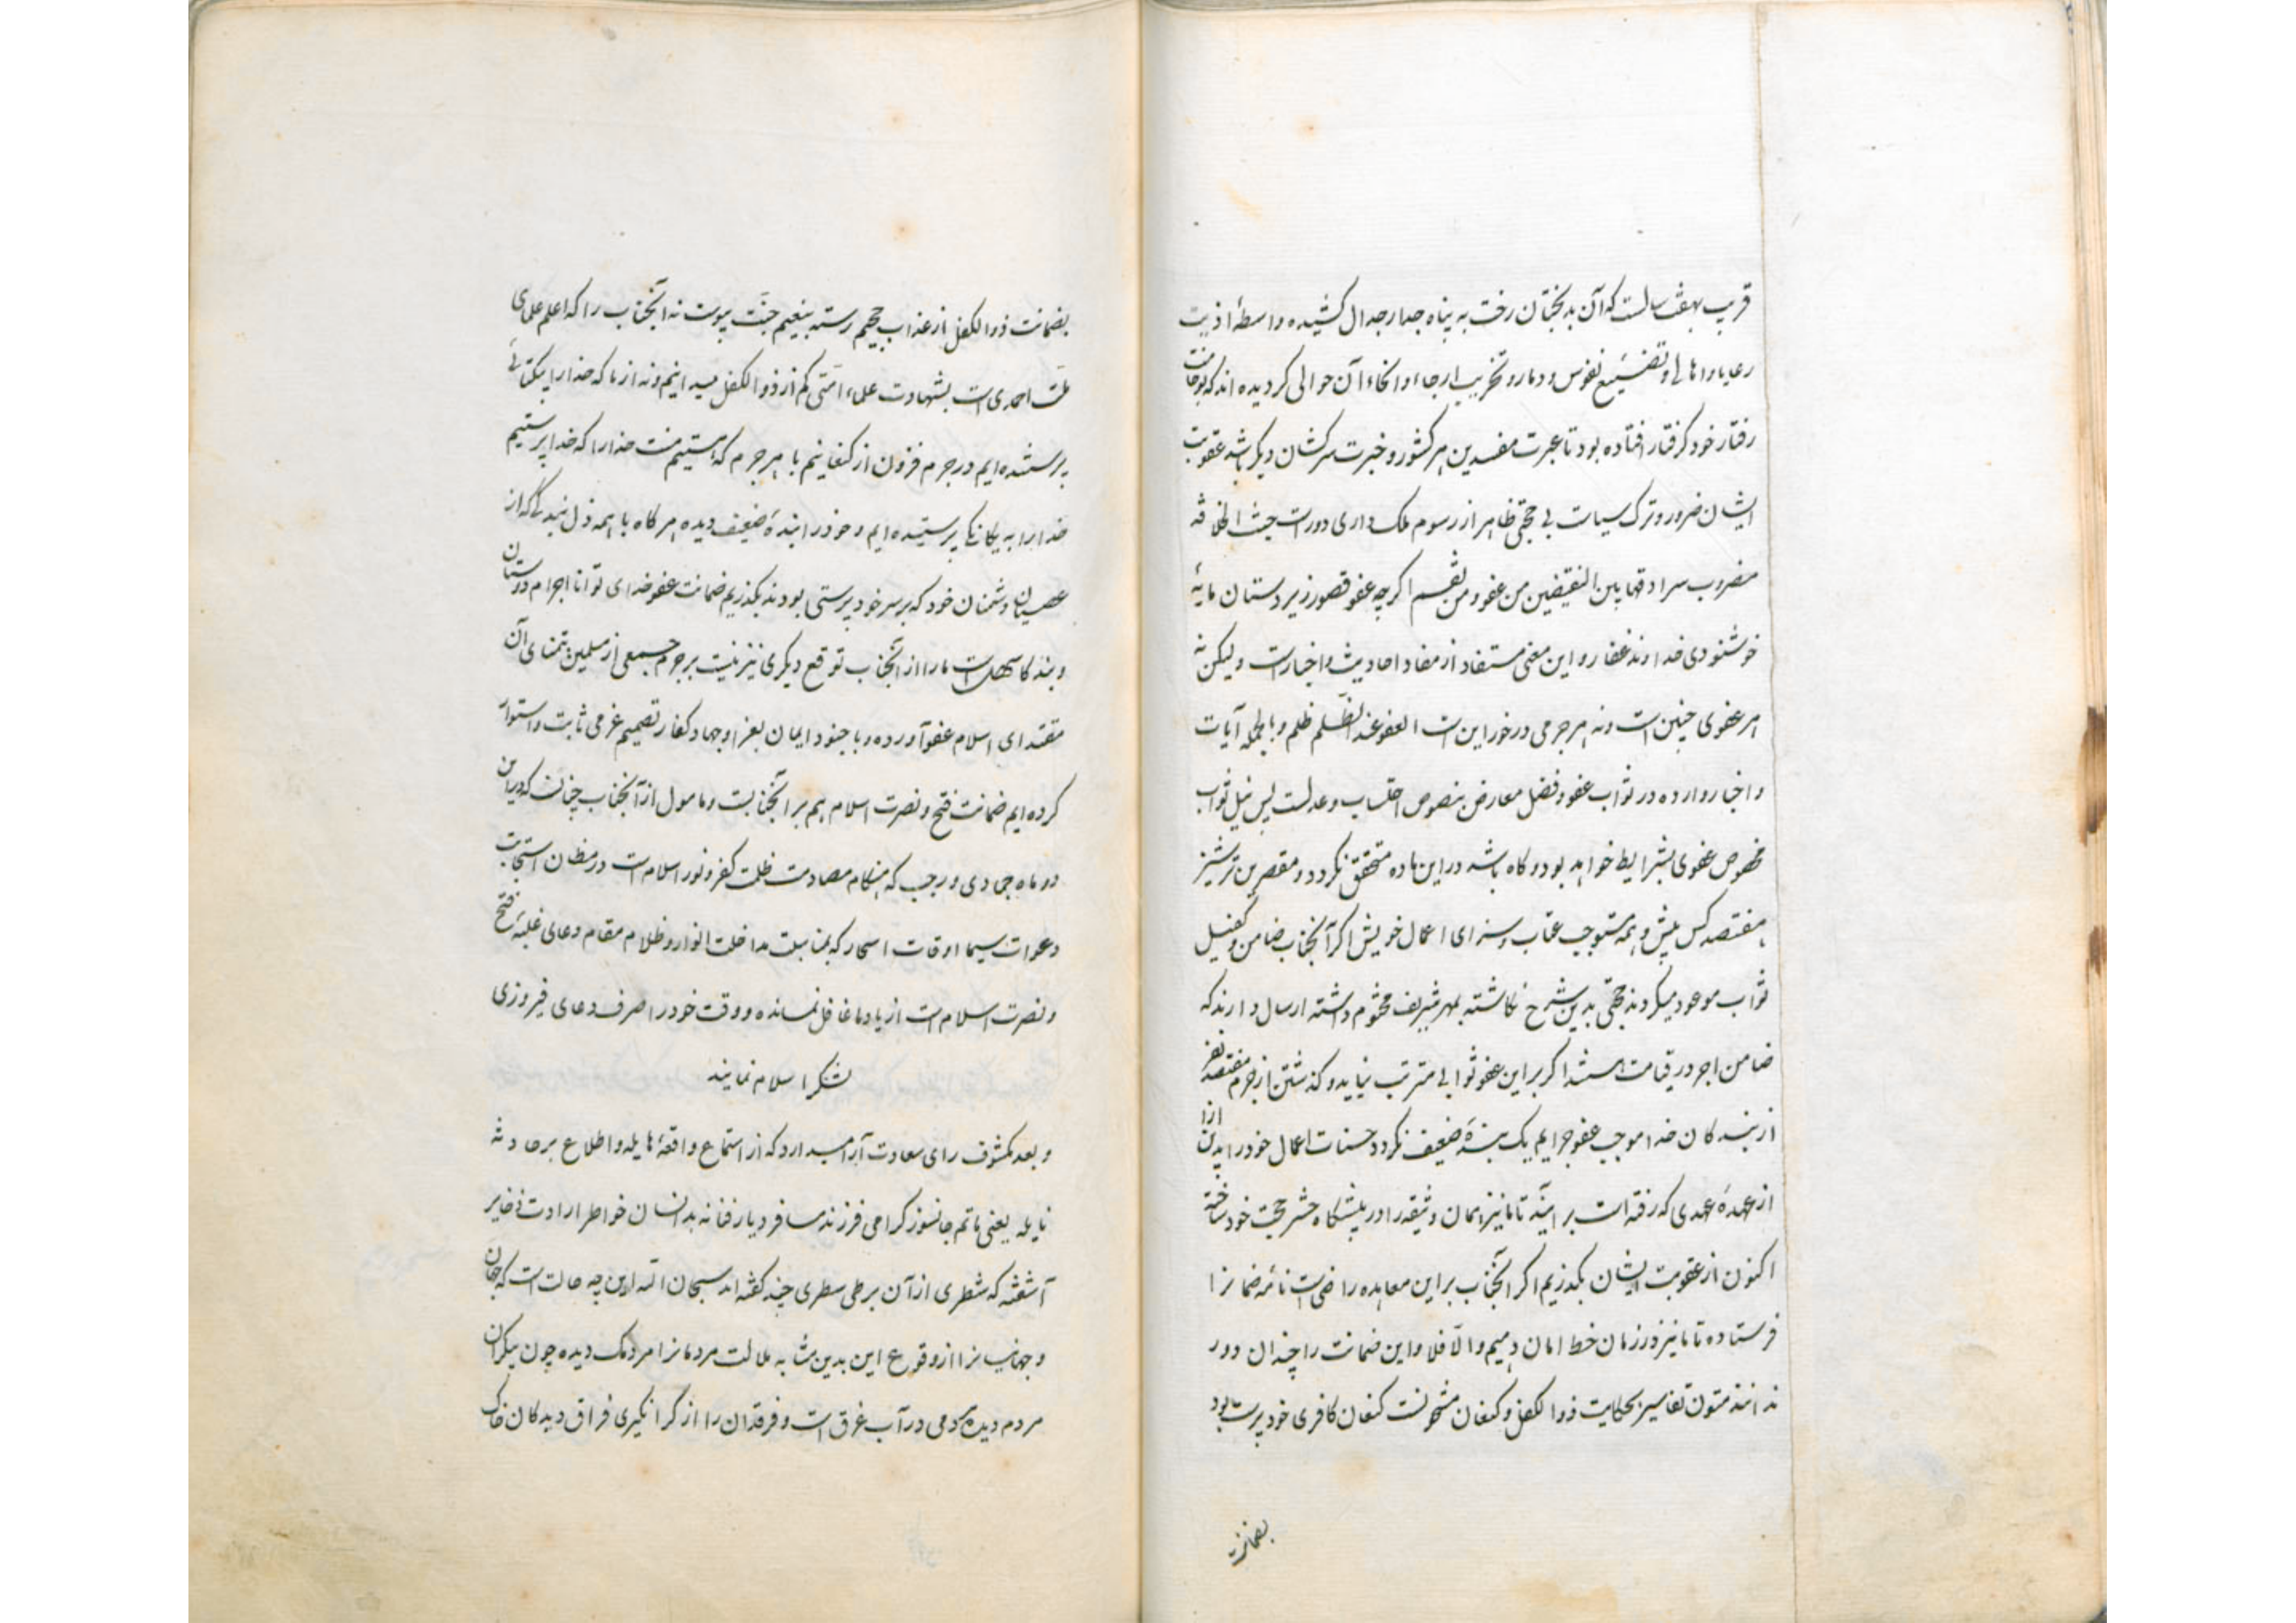 قریب بهفت سالست که آن بدبختان رخت به پناه جدار جدال کشیده واسطهٔ اذیت
رعایا و اهالی و تضییع نفوس و دمار و تخریب ارجاء و انحاء آن حوالی کردیده اند که
رفتار خود کرفتار افتاده بود تا عبرت مفسدین هر کشور و خبرت سرکشان دیگر باشد عقوبت
ایشان ضرور و ترک سیاست بی حجتی ظاهر از رسوم ملک داری دور است حیث الخلافه
مضروب سرادقها بین النقیضین من عفو و من نقم اکرچه عفو قصور زیردستان مایهٔ
خوشنودی خداوند غفار و این معنی مستفاد از مفاد احادیث و اخبارست ولیکن نه
هر عفوی چنین است و نه هر جرمی در خور این است العفو عند الظلم ظلم و بالجمله آیات
و اخبار وارده در ثواب عفو و فضل معارض بنصوص احتساب و عدلست پس نیل ثواب
مخصوص عفوی بشرایط خواهد بود و کاه باشد در این ماده متحقق نکردد و مقصرین ترشیز
هفتصد کس بیش و همه مستوجب عتاب و سزای اعمال خویش اکر آنجناب ضامن و کفیل
ثواب موعود میکردند حجتی بدین شرح نکاشته بمهر شریف مختوم داشته ارسال دارند که
ضامن اجر در قیامت باشند اکر بر این عفو ثوابی مترتب نیاید و کذشتن از جرم هفتصد نفر
از بندکان خدا موجب عفو جرایم یک بندهٔ ضعیف نکردد حسنات اعمال خود را
از عهدهٔ عهدی که رفته است برآیند تا ما نیز همان وثیقه را در پیشکاه حشر حجت خود ساخته
اکنون از عقوبت ایشان بکذریم اکر آنجناب بر این معاهده راضی است نامه ضمانرا
فرستاده تا ما نیز در زمان خط امان دهیم والا فلا و این ضمانت را چندان دور
ندانند متون تفاسیر بحکایت ذوالکفل و کنعان مشحونست کنعان کافری خودپرست بود
بضمانت
بضمانت ذوالکفل از عذاب جحیم رسته بنعیم جنت پیوست نه آنجناب را که اعلم علمای
ملت احمدی است بشهادت علماء امتی کم از ذوالکفل میدانیم و نه از ما که خدا را بیکتائی
پرستنده ایم در جرم فزون از کنعانیم با هر جرم که هستیم منت خدا را که خدا پرستیم
خدا را به یکانکی پرستیده ایم و خود را بندهٔ ضعیف دیده هر کاه با همه ذل بندکی که از
عصیان دشمنان خود که بر سر خود پرستی بودند بکذریم ضمانت عفو خدای توانا اجرام دوستان
و بندکان سهل است ما را از آنجناب توقع دیکری نیز نیست بر جرم جمعی از مسلمین بتمنای آن
مقتدای اسلام عفو آورده و با جنود ایمان بغزا و جهاد کفار تصمیم عزمی ثابت و استوار
کرده ایم ضمانت فتح و نصرت اسلام هم بر آنجنابست و مامول از آنجناب چنانست که در این
دو ماه جمادی و رجب که هنکام مصادمت ظلمت کفر و نور اسلام است در مظان استجابت
دعوات سیما اوقات اسحار که بمناسبت مداخلت انوار و ظلام مقام دعای غلبهٔ فتح
و نصرت اسلام است از یاد ما غافل نمانده و وقت خود را صرف دعای فیروزی
لشکر اسلام نمایند
و بعد مکشوف رای سعادت آرا میدارد که از استماع واقعهٔ هایله و اطلاع بر حادثه
نایله یعنی ماتم جانسوز کرامی فرزند مسافر دیار فنا نه بدانسان خواطر ارادت ذخایر
آشفته که شطری از آن بر طی سطری چند کفته آید سبحان الله این چه حالت است که جهان
و جهانیانرا از وقوع این بدین مثابه ملالت مردمانرا مردمک دیده چون بیکران
مردم دیده در آب غرق است و فرقدان را از کرانکیری فراق دیدکان خاک